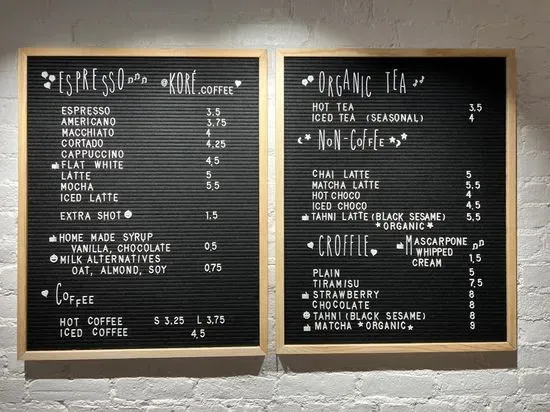 ESPRESSO @KORÉ.COFFEE
ESPRESSO 3.5
AMERICANO 3.75
MACCHIATO 4
CORTADO 4.25
CAPPUCCINO
FLAT WHITE 4,5
LATTE 5
MOCHA 5,5
ICED LATTE
EXTRA SHOT 1,5
HOME MADE SYRUP
VANILLA, CHOCOLATE 0,5
MILK ALTERNATIVES
OAT, ALMOND, SOY 0,75
COFFEE
HOT COFFEE S 3,25 L 3,75
ICED COFFEE 4,5
ORGANIC TEA
HOT TEA 3,5
ICED TEA (SEASONAL) 4
NON-COFFEE
CHAI LATTE 5
MATCHA LATTE 5,5
HOT CHOCO 4
ICED CHOCO 4,5
TAHNI LATTE (BLACK SESAME) 5,5
★ORGANIC★
CROFFLE MASCARPONE
WHIPPED
CREAM 1,5
PLAIN 5
TIRAMISU 7,5
STRAWBERRY 8
CHOCOLATE 8
TAHNI (BLACK SESAME) 8
MATCHA ★ORGANIC★ 9